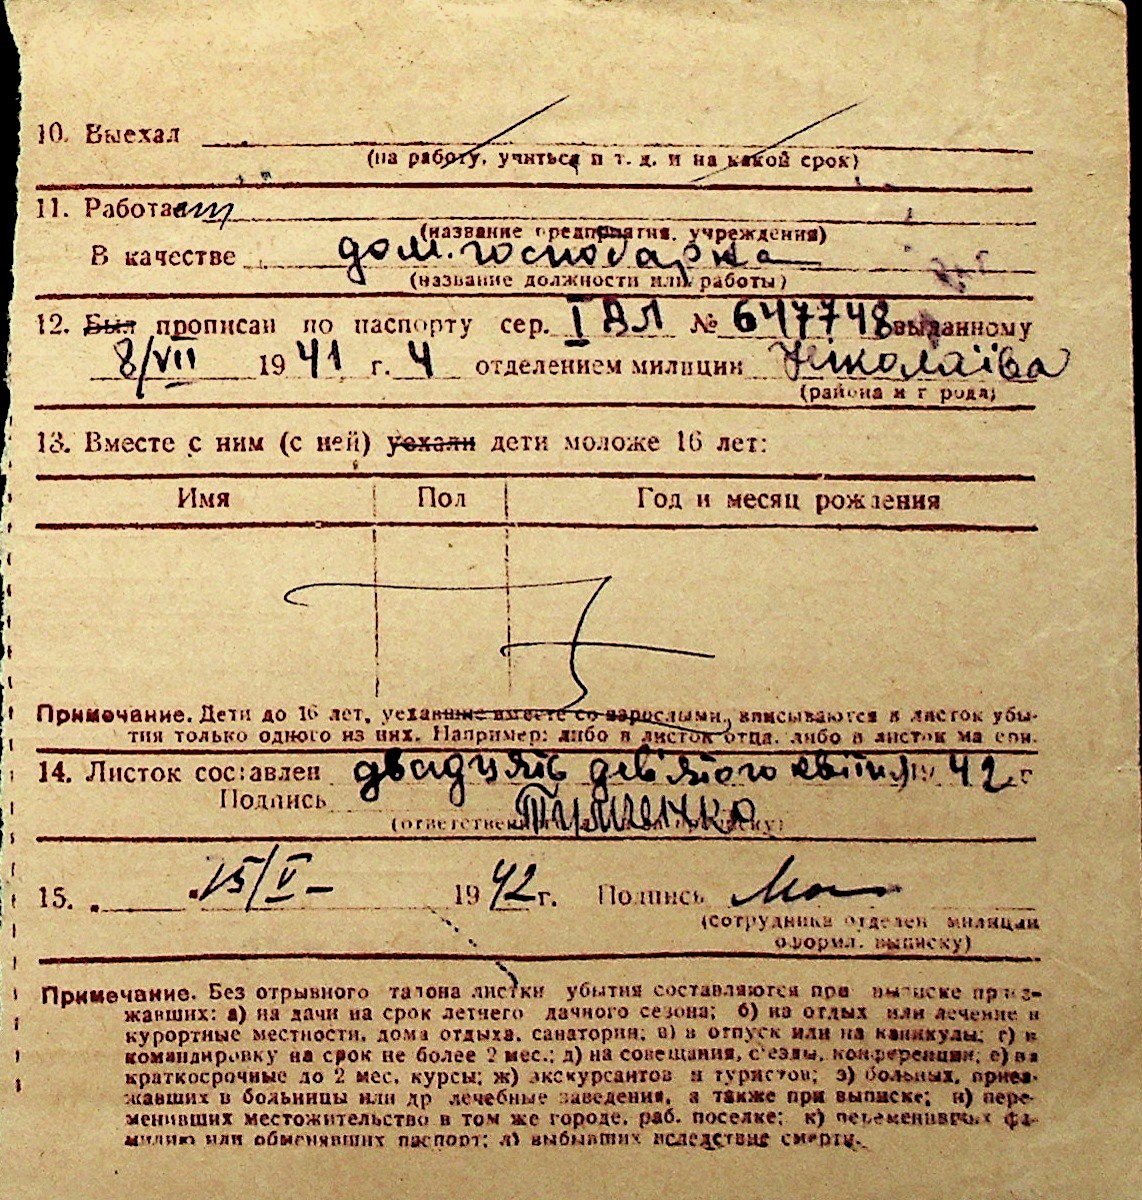 10. Выехал
(на работу, учиться и т. д. и на какой срок)
11. Работает
(название предприятия, учреждения)
В качестве дом. господарка
(название должности или работы)
12. Был прописан по паспорту сер. I ВЛ № 647748 выданному
8/VII 1941 г. 4 отделением милиции Ніколаїва
(района и города)
13. Вместе с ним (с ней) уехали дети моложе 16 лет:
Имя Пол Год и месяц рождения
Примечание. Дети до 16 лет, уехавшие вместе со взрослыми, вписываются в листок убы-
тия только одного из них. Например: либо в листок отца, либо в листок матери.
14. Листок составлен двадцять дев'ятого квітня 1942 г
Подпись
(ответственного за прописку)
15. 15/V 1942 г. Подпись
(сотрудника отделен милиции
оформл. выписку)
Примечание. Без отрывного талона листки убытия составляются при выписке приез-
жавших: а) на дачи на срок летнего дачного сезона; б) на отдых или лечение в
курортные местности, дома отдыха, санатории; в) в отпуск или на каникулы; г) в
командировку на срок не более 2 мес.; д) на совещания, с'езды, конференции; е) на
краткосрочные до 2 мес. курсы; ж) экскурсантов и туристов; з) больных, приез-
жавших в больницы или др лечебные заведения, а также при выписке; и) пере-
менивших местожительство в том же городе, раб. поселке; к) переменивших фа-
милию или обменявших паспорт; л) выбывших вследствие смерти.